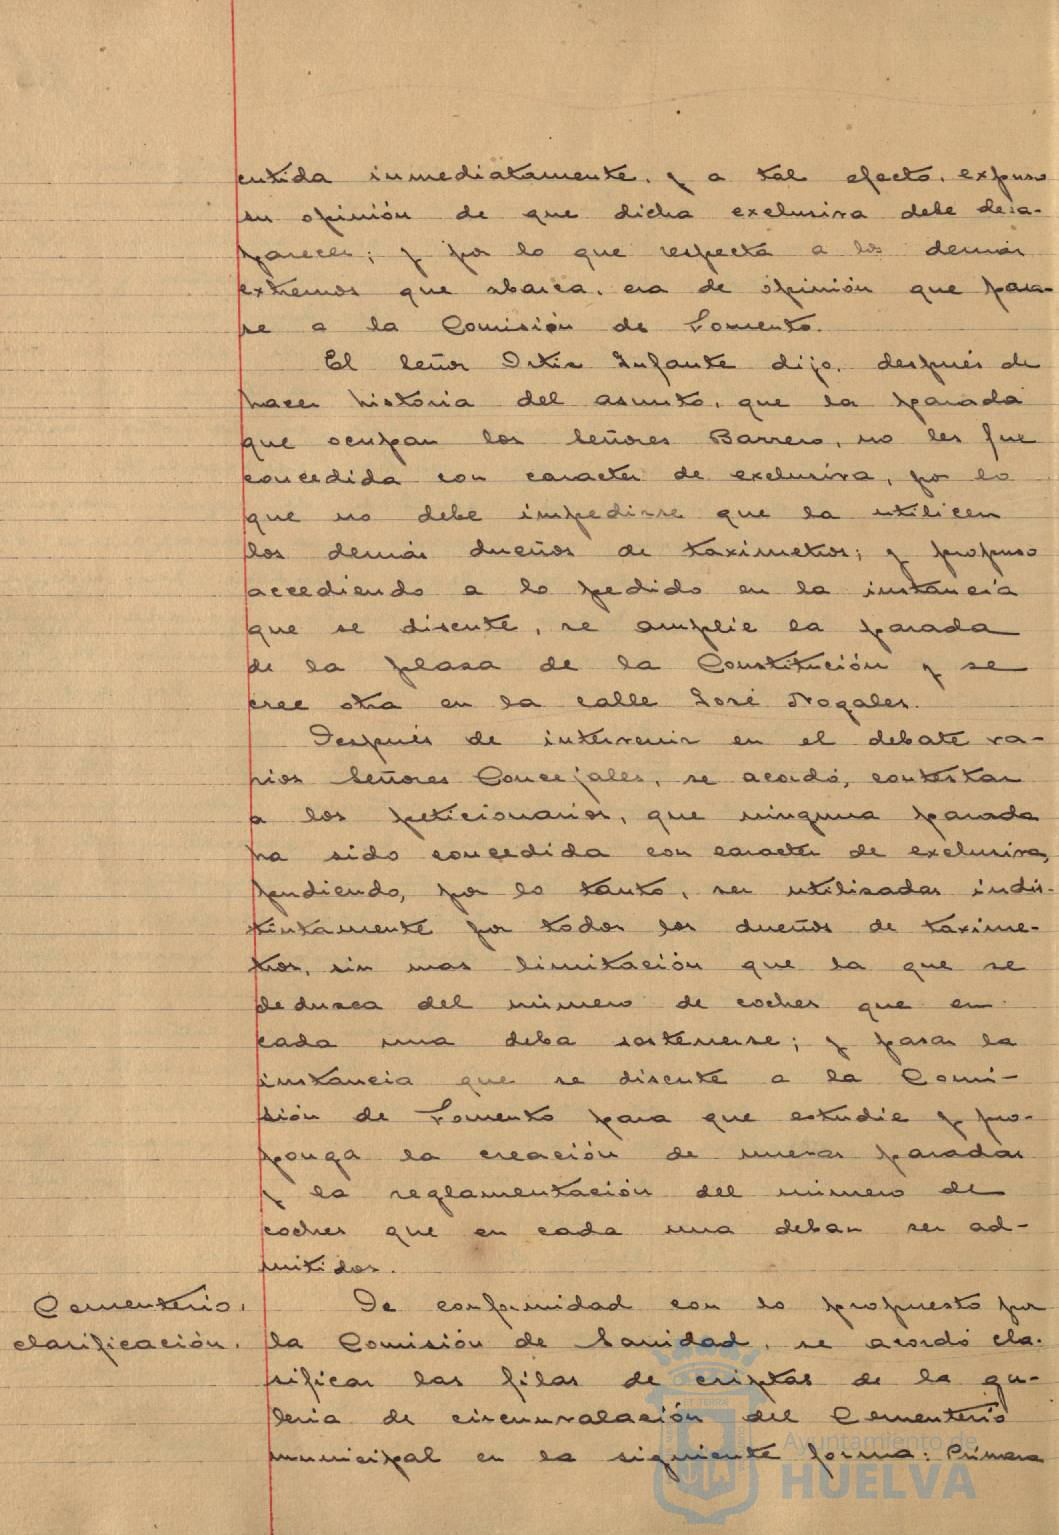 cutida inmediatamente. y a tal efecto. expuso
su opinión de que dicha exclusiva debe desa-
parecer; y por lo que respecta a los demás
extremos que abarca. era de opinión que pasa-
se a la Comisión de Fomento.
El Señor Ortiz Infante dijo. después de
hacer historia del asunto. que la parada
que ocupan los Señores Barrero, no les fue
concedida con caracter de exclusiva, por lo
que no debe impedirse que la utilicen
los demás dueños de taximetros; y propuso
accediendo a lo pedido en la instancia
que se discute, se amplie la parada
de la plaza de la Constitución y se
cree otra en la calle José Nogales.
Después de intervenir en el debate va-
rios Señores Concejales, se acordó, contestar
a los peticionarios, que ninguna parada
ha sido concedida con caracter de exclusiva,
pudiendo, por lo tanto, ser utilizadas indis-
tintamente por todos los dueños de taxime-
tros, sin mas limitación que la que se
deduzca del número de coches que en
cada una deba sostenerse; y pasar la
instancia que se discute a la Comi-
sión de Fomento para que estudie y pro-
ponga la creación de nuevas paradas
y la reglamentación del número de
coches que en cada una deban ser ad-
mitidos.
Cementerio,
clasificación.
De conformidad con lo propuesto por
la Comisión de Sanidad, se acordó cla-
sificar las filas de criptas de la ga-
leria de circunvalación del Cementerio
municipal en la siguiente forma: Primera
Ayuntamiento de
HUELVA